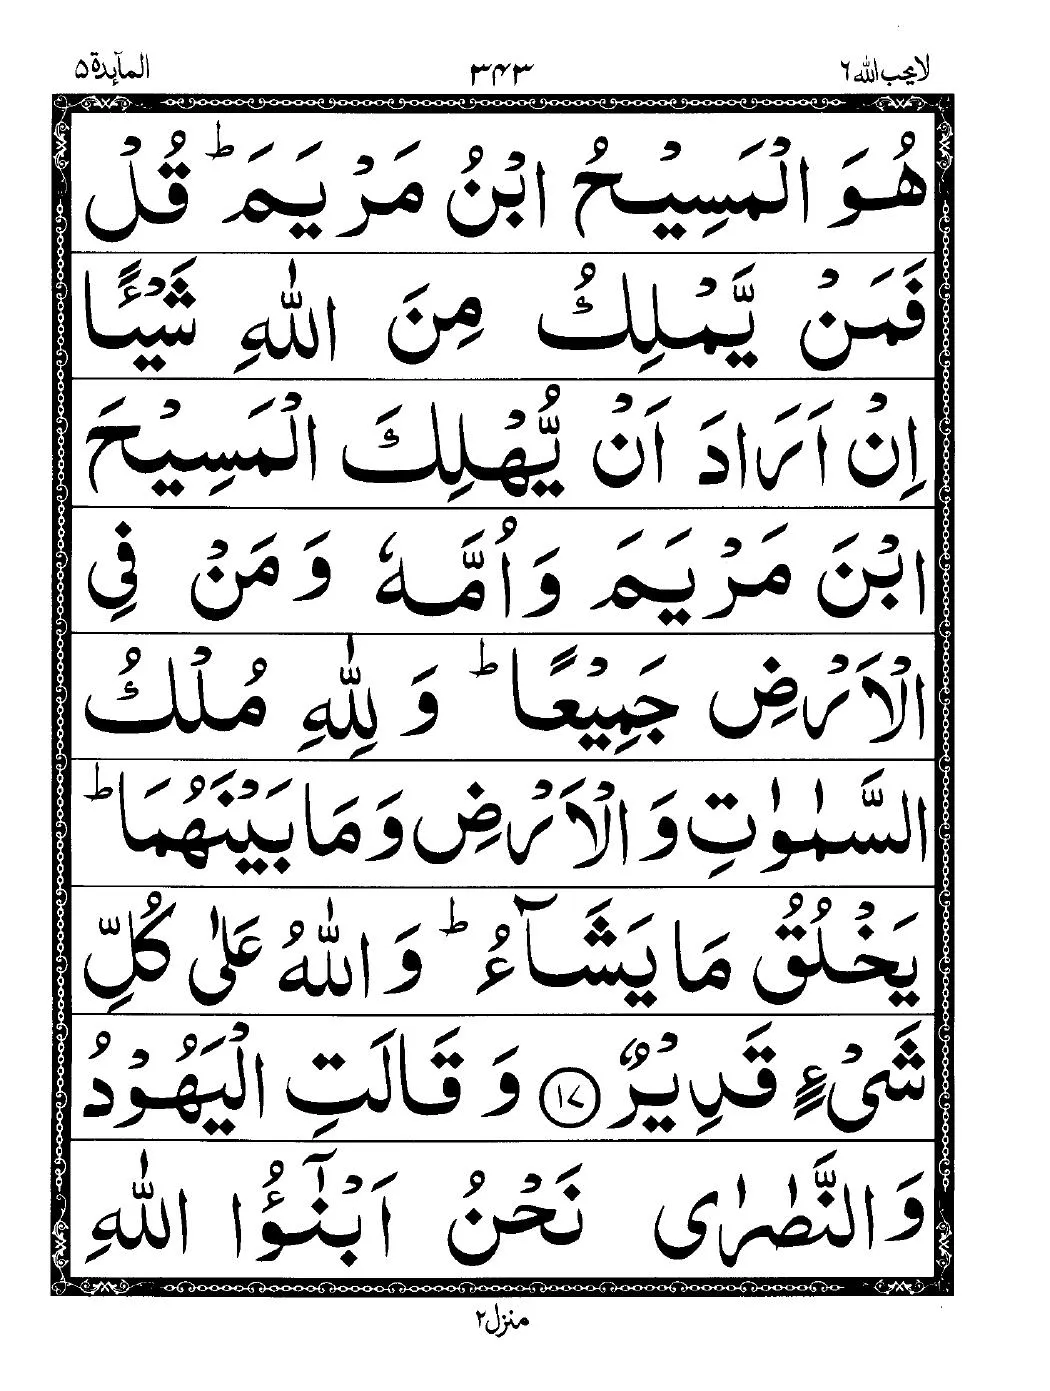 لا یحب الله ۶ ۳۴۳ المآىِٕدة ۵
هُوَ الْمَسِیْحُ ابْنُ مَرْیَمَ ؕ قُلْ
فَمَنْ یَّمْلِكُ مِنَ اللّٰهِ شَیْـًٔا
اِنْ اَرَادَ اَنْ یُّهْلِكَ الْمَسِیْحَ
ابْنَ مَرْیَمَ وَاُمَّهٗ وَمَنْ فِی
الْاَرْضِ جَمِیْعًا ؕ وَلِلّٰهِ مُلْكُ
السَّمٰوٰتِ وَالْاَرْضِ وَمَا بَیْنَهُمَا ؕ
یَخْلُقُ مَا یَشَآءُ ؕ وَاللّٰهُ عَلٰی كُلِّ
شَیْءٍ قَدِیْرٌ ۝۱۷ وَقَالَتِ الْیَهُوْدُ
وَالنَّصٰرٰی نَحْنُ اَبْنٰٓؤُا اللّٰهِ
منزل ۲